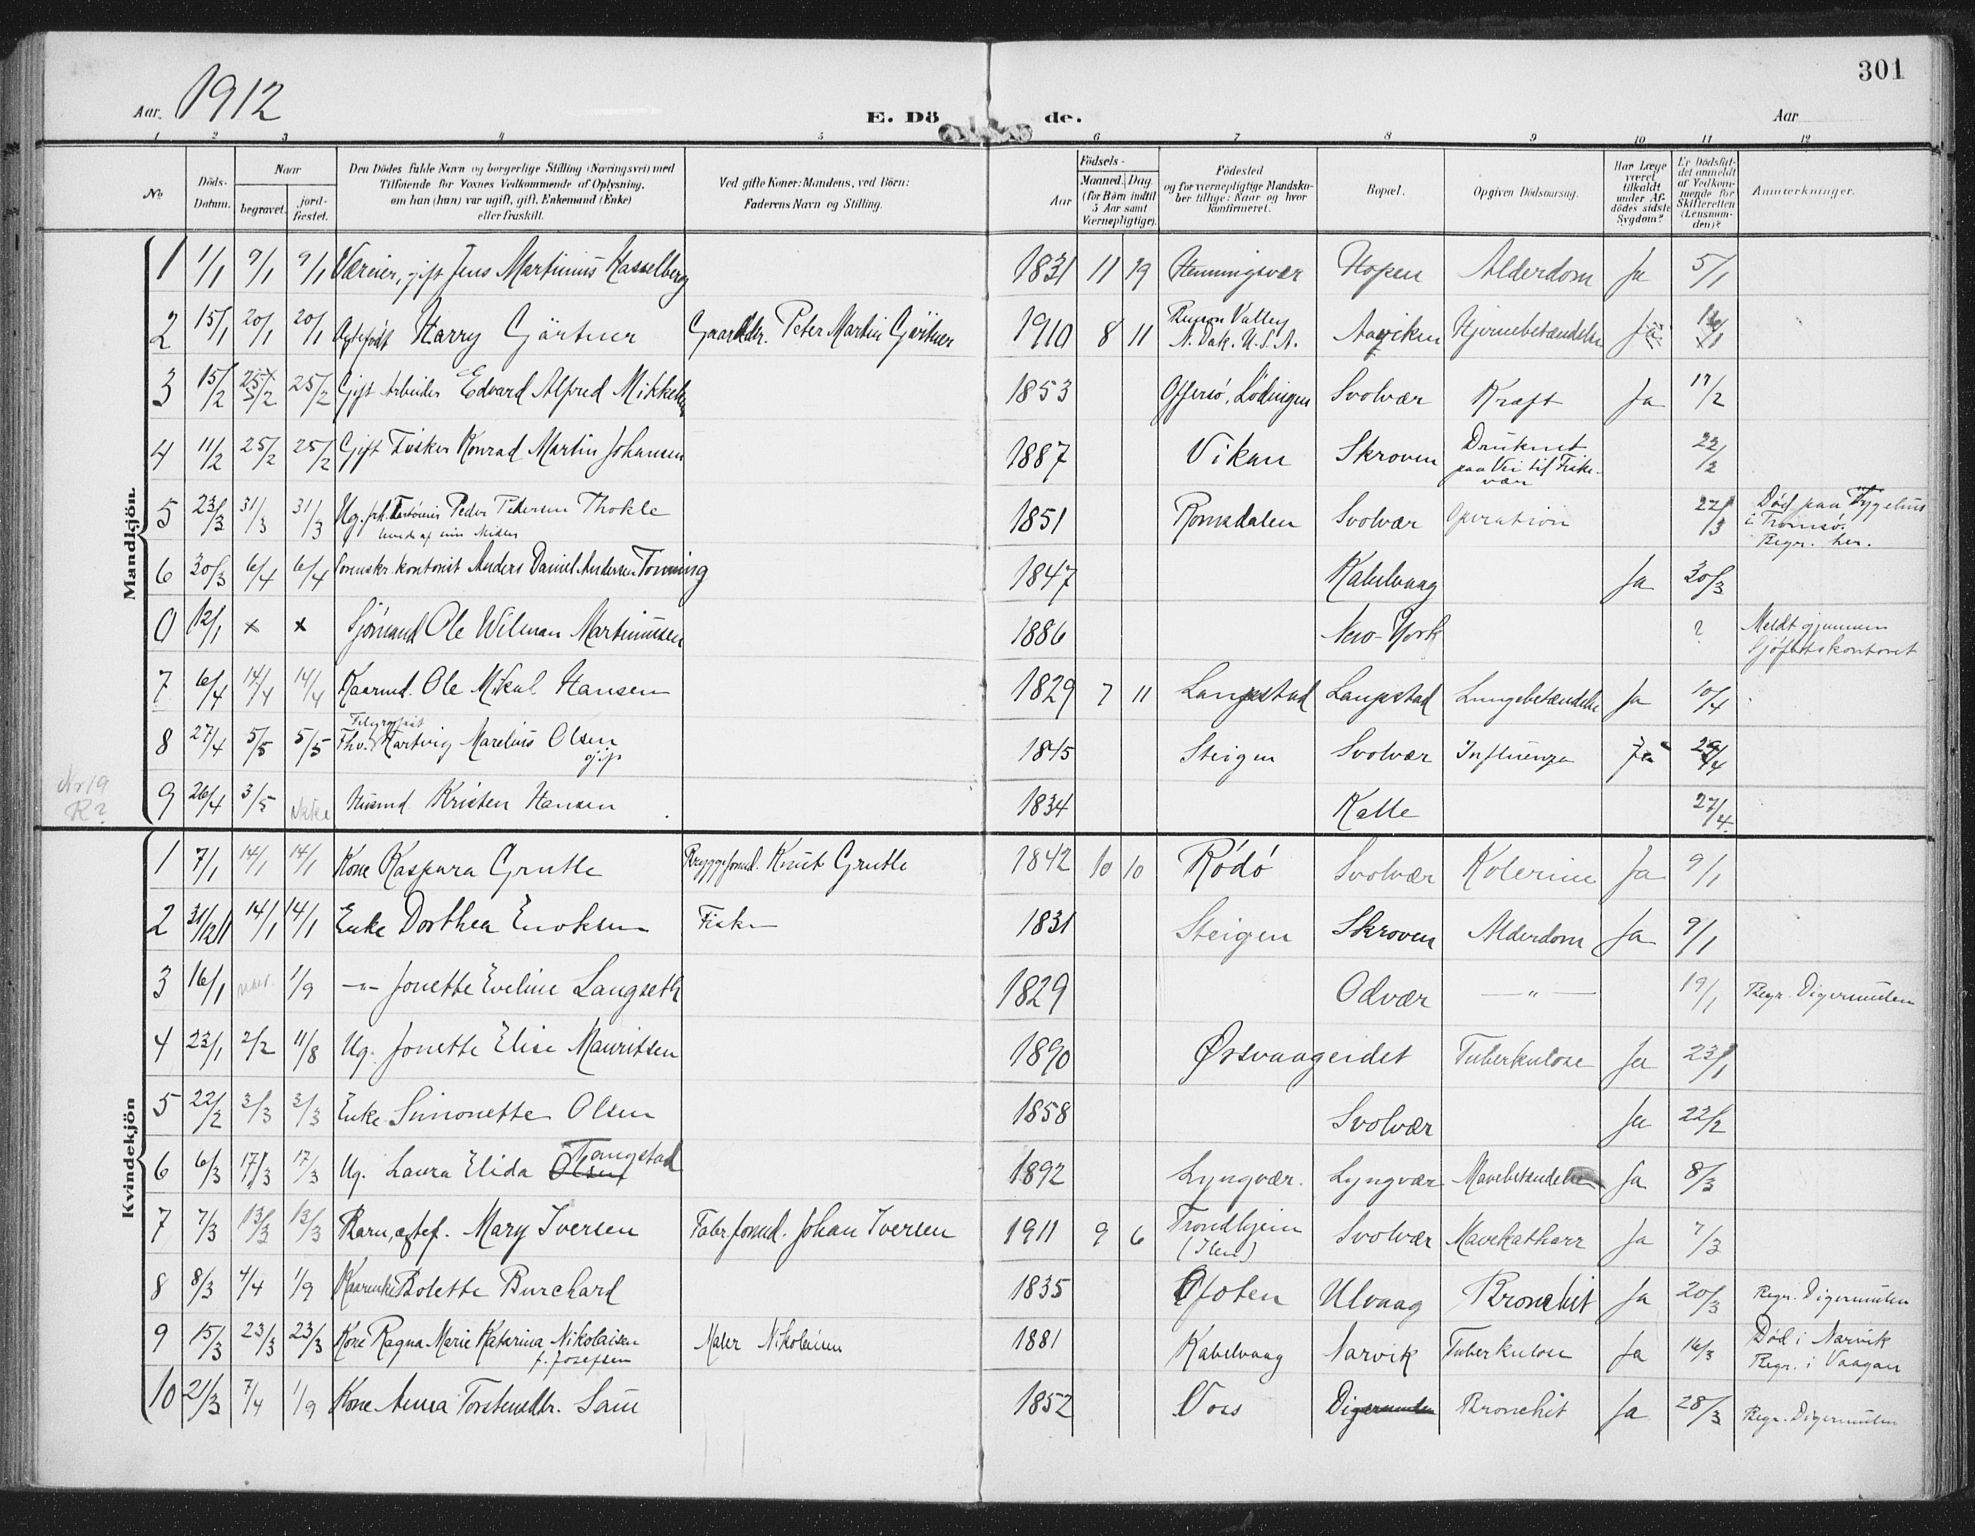 301
Aar. 1912
E. Dö de.
Aar
1 2 3 4 5 6 7 8 9 10 11 12
No.
Döds-Datum.
Naar
begravet.
jord-fæstet.
Den Dödes fulde Navn og borgerlige Stilling (Næringsvei) med
Tilföiende for Voxnes Vedkommende af Oplysning,
om han (hun) var ugift, gift, Enkemand (Enke)
eller fraskilt.
Ved gifte Koner: Mandens, ved Börn:
Faderens Navn og Stilling.
Födsels-
Aar
Maaned. Dag.
(for Børn indtil
5 Aar samt
Værnepligtige).
Födested
og for værnepligtige Mandska-
ber tillige: Naar og hvor
konfirmeret.
Bopæl.
Opgiven Dödsaarsag.
Har Læge
været
tilkaldt
under Af-
dödes sidste
Sygdom?
Er Dödsfal-
det anmeldt
af Vedkom-
mende for
Skifteretten
(Lensman-
den)?
Anmærkninger.
Mandkjön.
1 1/1 9/1 9/1 Væreier, gift Jens Martinus Kasselberg 1831 11 19 Henningsvær Hopen Alderdom Ja 5/1
2 15/1 20/1 20/1 Ægtefødt Harry Gärtner Gaardbr. Peter Martin Gärtner 1910 8 11 Valley N. Dak. U.S.A. Hjernebetændelse Ja
3 15/2 25/2 25/2 Gift Arbeider Edvard Alfred Mikkelsen 1853 Offersö, Lödingen Svolvær Kræft Ja 17/2
4 11/2 25/2 25/2 Gift Fisker Konrad Martin Johansen 1887 Vikan Skroven Druknet paa Vei til Fiskevær 22/2
5 23/3 31/3 31/3 Ug. Peder Petersen Thokle 1851 Romsdalen Svolvær Operation 27/3 Död paa Sygehus i Tromsö. Begr. her.
6 30/3 6/4 6/4 Sorenskr. kontorist Anders Daniel Andersen Tonning 1847 Kabelvaag Ja 30/3
0 12/1 x x Sjömand Ole Wilman Martinussen 1886 New-York ? Meldt gjennem Sjöfartskontoret
7 6/4 14/4 14/4 Kaarmd. Ole Mikal Hansen 1829 7 11 Laupstad Laupstad Lungebetændelse Ja 10/4
8 27/4 5/5 5/5 Thv. Hartvig Marelius Olsen gift 1845 Steigen Svolvær Influenza Ja 29/4
Nr 19
R?
9 26/4 3/5 Husmd Kristen Hansen 1834 Kalle 27/4
Kvindekjön
1 7/1 14/1 14/1 Kone Kaspara Grutle Bryggeformd. Knut Grutle 1842 10 10 Rödö Svolvær Kolerine Ja 9/1
2 31/12 11 14/1 14/1 Enke Dorthea Enoksen Fisker 1831 Steigen Skroven Alderdom Ja 9/1
3 16/1 1/9 -"- Jonette Eveline Langseth 1829 Odvær — " — 19/1 Begr. Digermulen
4 23/1 2/2 11/8 Ug. Jonette Elise Mauritsen 1890 Örsvaageidet Tuberkulose Ja 23/1
5 22/2 3/3 3/3 Enke Simonette Olsen 1858 Svolvær Ja 22/2
6 6/3 17/3 17/3 Ug. Laura Elida Olsen Tangstad 1892 Lyngvær. Lyngvær Mavebetændelse Ja 8/3
7 7/3 13/3 13/3 Barn, ægtef. Mary Iversen Fabr.formd. Johan Iversen 1911 9 6 Trondhjem (Ilen) Svolvær Mavekatharr Ja 7/3
8 8/3 4/4 1/9 Kaarenke Bolette Burchard 1835 Ofoten Ulvaag Bronchit Ja 20/3 Begr. Digermulen
9 15/3 23/3 23/3 Kone Ragna Marie Katarina Nikolaisen f. Josefsen Maler Nikolaisen 1881 Kabelvaag Narvik Tuberkulose Ja 16/3 Död i Narvik Begr. i Vaagan
10 21/3 7/4 1/9 Kone Anna Torsteinsdtr. Saue 1852 Voss Digermulen Bronchit Ja 28/3 Begr. Digermulen